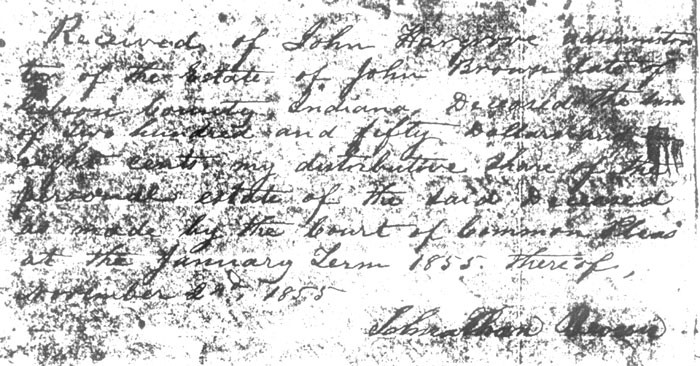 Received of John Hargrove administra
tor of the Estate of John Brown late of
Gibson County Indiana Deceased the sum
of two hundred and fifty Dollars and
eight cents my distributive Share of the
personal estate of the said Deceased
as made by the Court of Common Pleas
at the January Term 1855. thereof,
November 2nd, 1855
Johnathan Brown